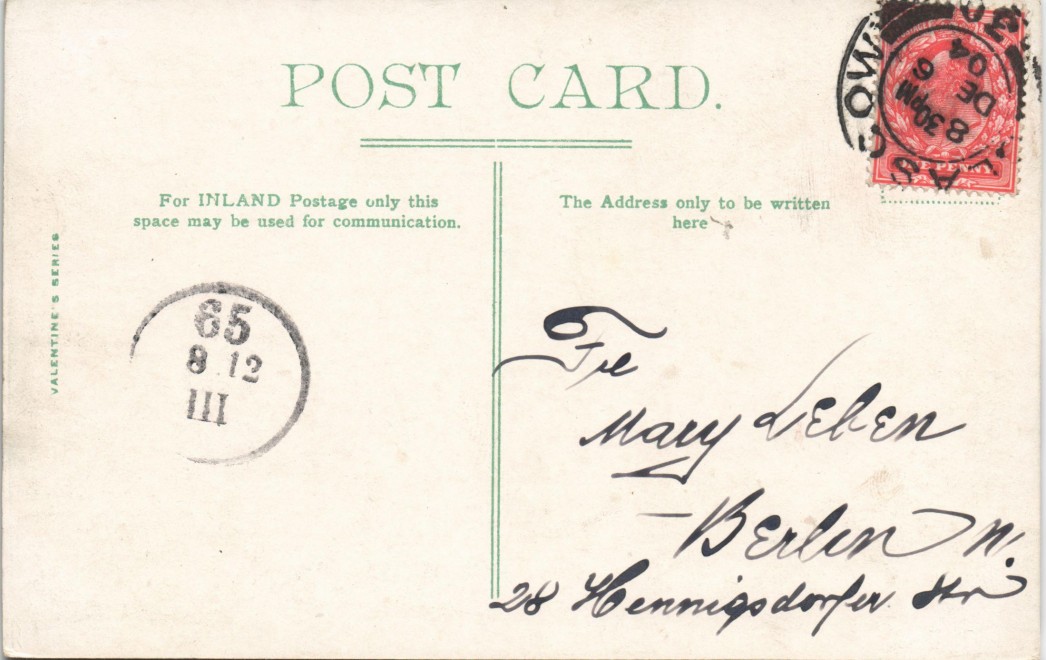 POST CARD.
For INLAND Postage only this
space may be used for communication.
The Address only to be written
here
VALENTINE'S SERIES
GLASGOW
8 30 PM
DE 6
04
ONE PENNY
65
8 12
III
Frl
Mary Leben
Berlin N.
28 Hennigsdorfer Str